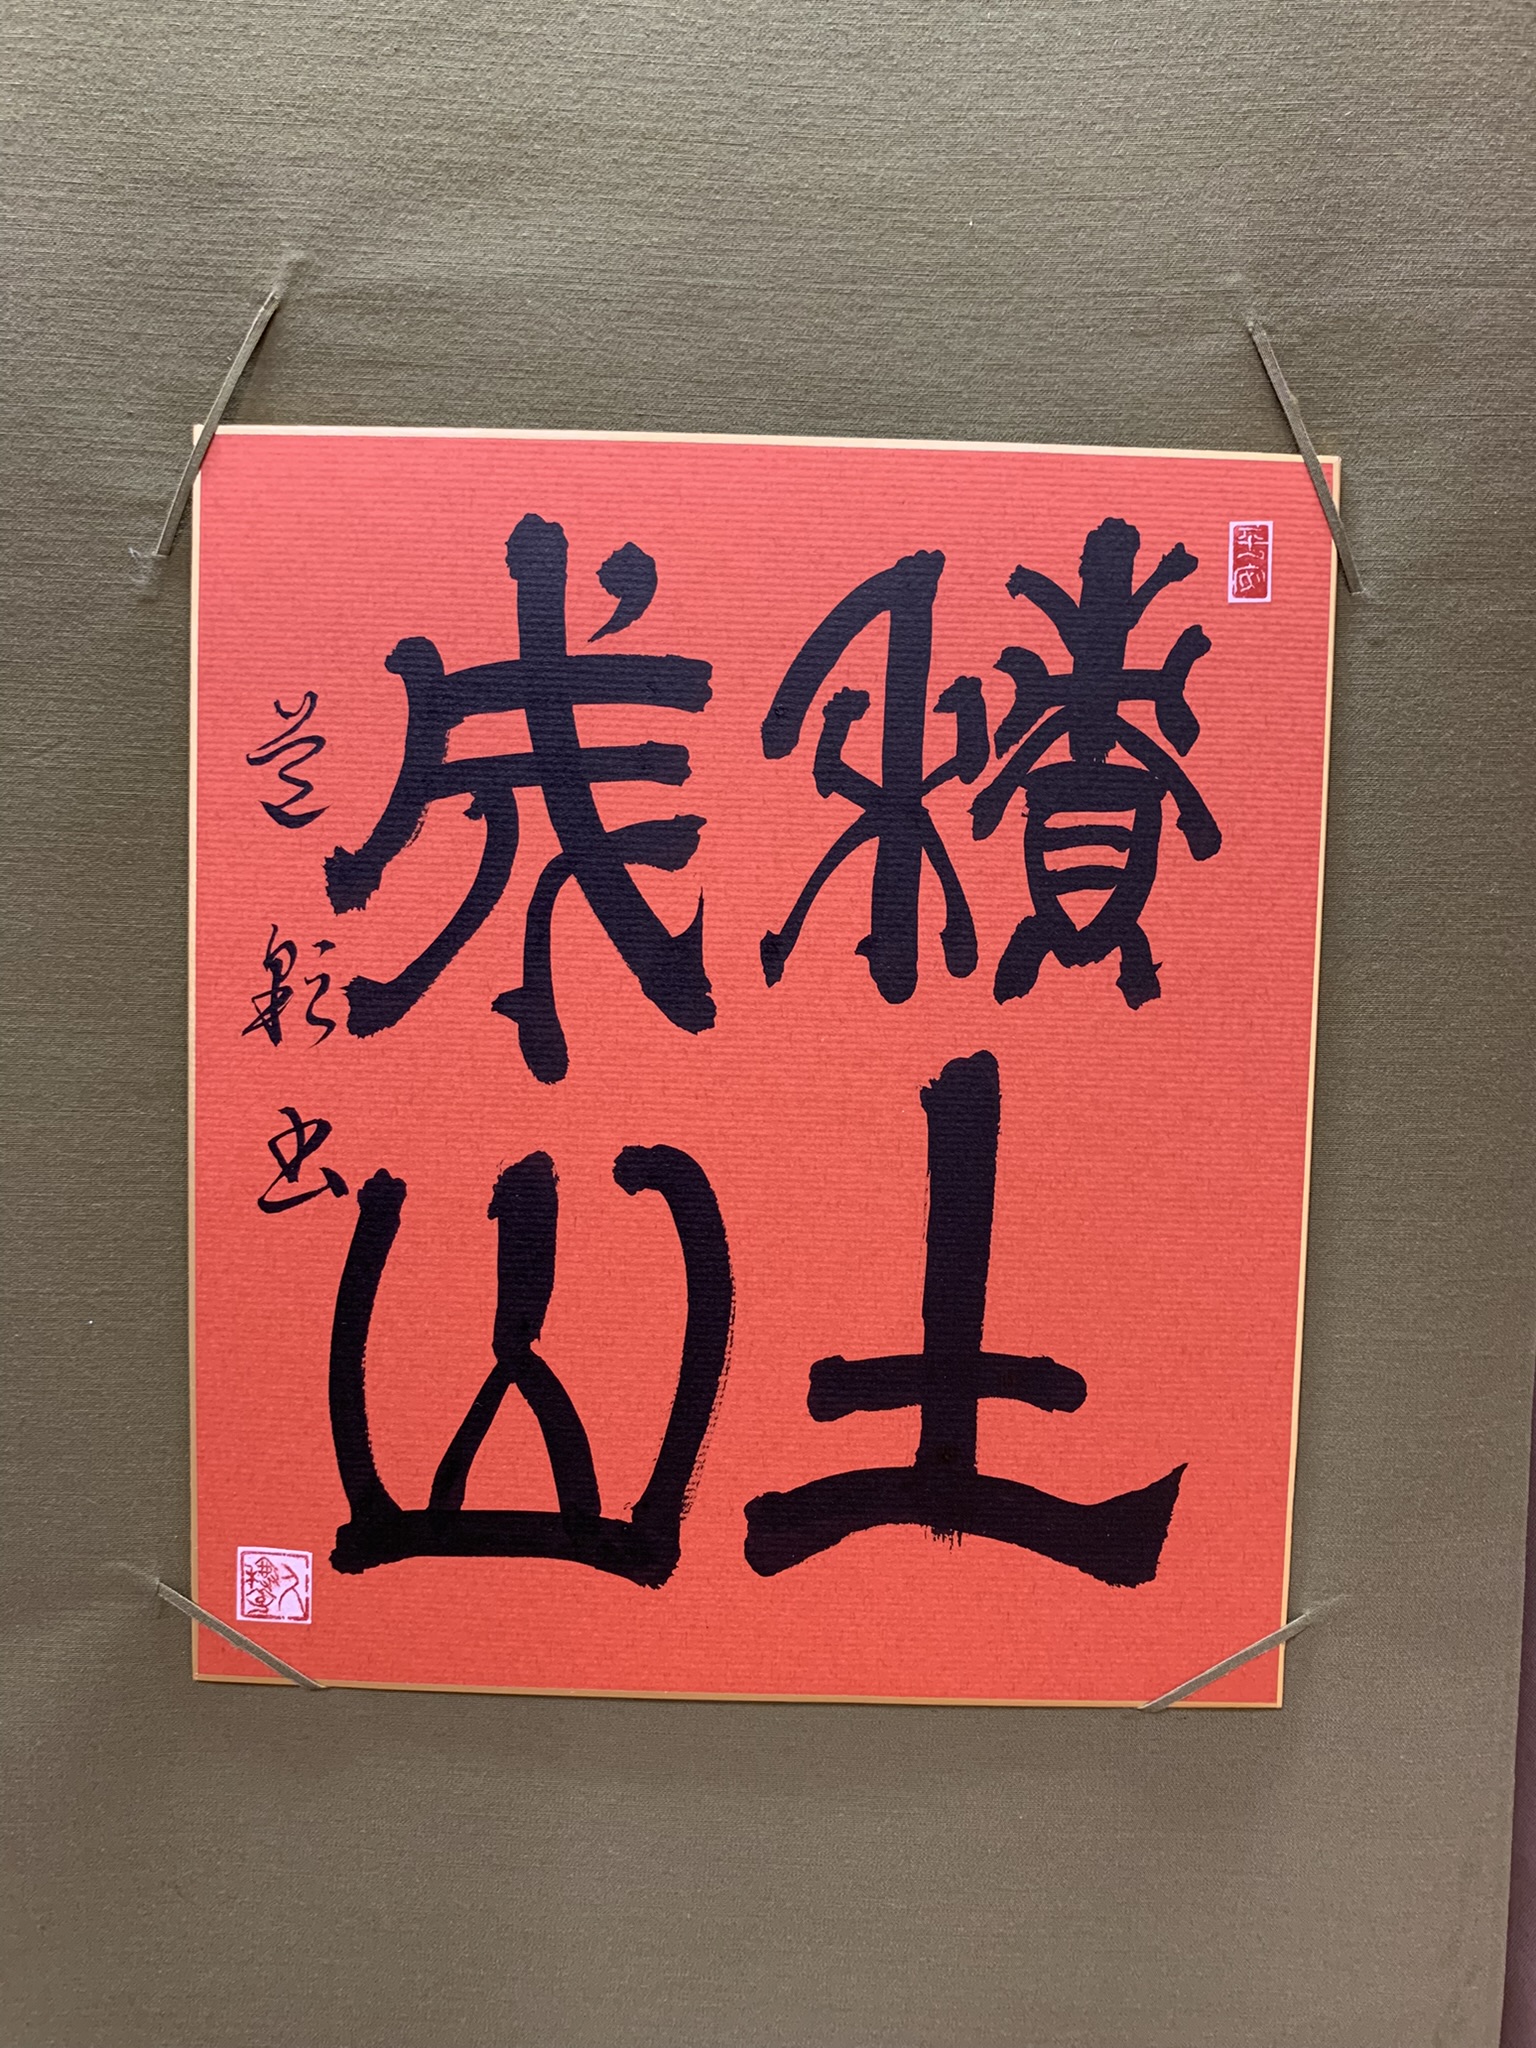 積土
成山
書